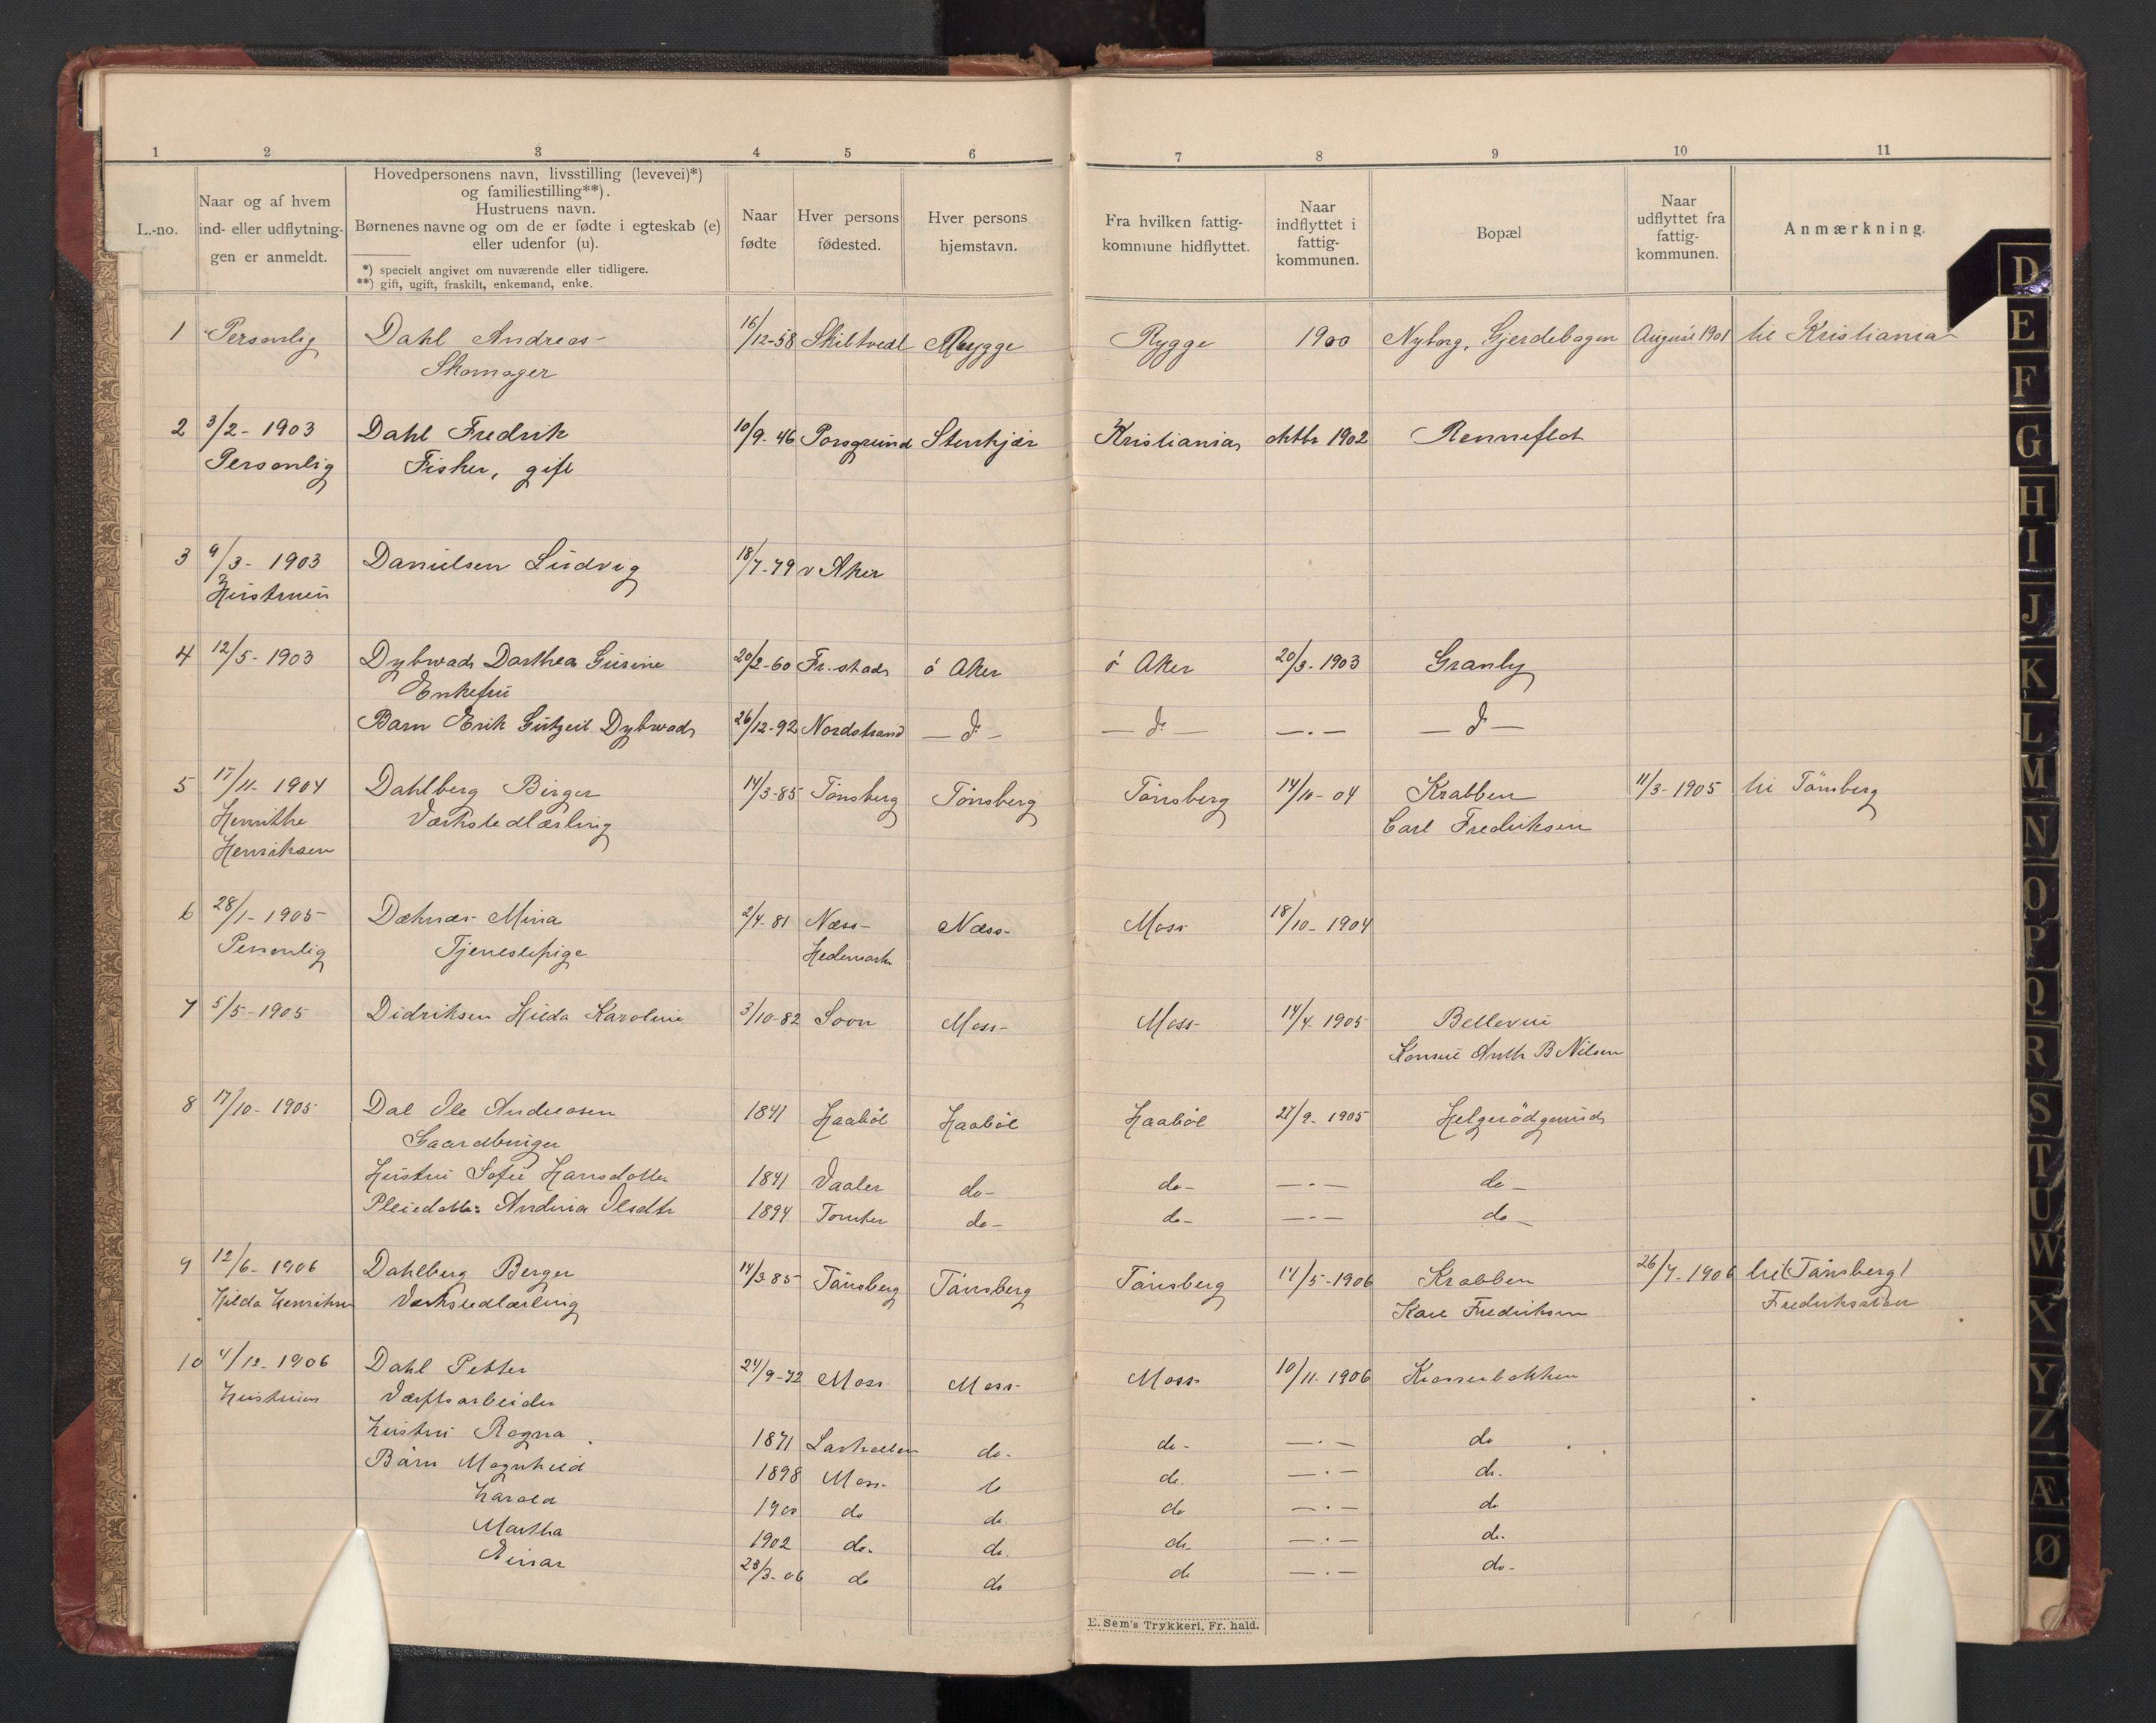 1 2 3 4 5 6 7 8 9 10 11
L.-no.
Naar og af hvem
ind- eller udflytnin-
gen er anmeldt.
Hovedpersonens navn, livsstilling (levevei)*)
og familiestilling**).
Hustruens navn.
Børnenes navne og om de er fødte i egteskab (e)
eller udenfor (u).
*) specielt angivet om nuværende eller tidligere.
**) gift, ugift, fraskilt, enkemand, enke.
Naar
fødte
Hver persons
fødested.
Hver persons
hjemstavn.
Fra hvilken fattig-
kommune hidflyttet.
Naar
indflyttet i
fattig-
kommunen.
Bopæl
Naar
udflyttet fra
fattig-
kommunen.
Anmærkning.
1 Personlig Dahl Andreas 16/12-58 Skibtvedt Rygge Rygge 1900 Nyborg, Gjerdebogen August 1901 til Kristiania
Skomager
2 3/2- 1903 Dahl Fredrik 10/9-46 Porsgrund Stenkjær Kristiania oktbr 1902 Renneflot
Personlig Fisker, gift
3 9/3- 1903 Danielsen Ludvig 18/7-79 v Aker
Hustruen
4 12/5- 1903 Dybwad Dorthea Gurine 20/2-60 Fr.stad ö Aker ö Aker 20/3-1903 Granly
Enkefru
Barn Erik Gutzeit Dybwad 26/12-92 Nordstrand - d° - - d° - -.- - d° -
5 15/11- 1904 Dahlberg Birger 14/3-85 Tönsberg Tönsberg Tönsberg 14/10-04 Krabben 11/3-1905 til Tönsberg
Henrikke Værkstedlærling Carl Fredriksen
Henriksen
6 28/1-1905 Mina 2/4-81 Næss Næss Moss 18/10-1904
Personlig Tjenestepige Hedemark
7 5/5-1905 Didriksen Hilda Karoline 3/10-82 Soon Moss Moss 14/4 1905 Bellevue
Konsul Anth B Nilsen
8 17/10-1905 Dal Ole Andreasen 1841 Haaböl Haaböl Haaböl 27/9-1905 Helgerödgrund
Gaardbruger
Hustru Sofie Hansdatter 1841 Vaaler do- do- -.- do-
Pleiedatter Andrea Olsdtr 1894 Tomter do- do- -.- do-
9 12/6-1906 Dahlberg Berger 14/3 85 Tönsberg Tönsberg Tönsberg 14/5-1906 Krabben 26/7-1906 til (Tönsberg)
Hilda Henriksen Værkstedlærling Karl Fredriksen Fredrikstad
10 4/12-1906 Dahl Petter 24/9-72 Moss Moss Moss 10/11-1906 Kransebakken
Hustruen Værftsarbeider
Hustru Ragna 1871 Larkollen do- do- -.- do
Barn Magnhild 1898 Moss do do. -.- do.
Harald 1900 do do. do -.- do
Martha 1902 do. do. do. -.- do.
Einar 23/3-06 do do do -.- do-
E. Sem's Trykkeri, Fr. hald.
D
E
F
G
H
I
J
K
L
M
N
O
P
Q
R
S
T
U
W
X
Y
Z
Æ
Ø